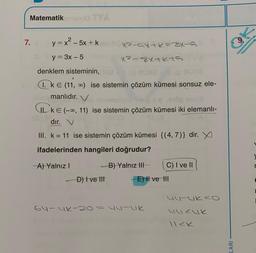 Matematik
7. y = x² - 5x + k
x²-5x+k=3x-5
y = 3x - 5
x²-8x+k+5
denklem sisteminin,
I. k ∈ (11, ∞) ise sistemin çözüm kümesi sonsuz elemanlıdır. √
II. k ∈ (-∞, 11) ise sistemin çözüm kümesi iki elemanlıdır. √
III. k = 11 ise sistemin çözüm kümesi {(4, 7)} dir. X
ifadelerinden hangileri doğrudur?
A) Yalnız I B) Yalnız III C) I ve II
D) I ve III E) II ve III
44-4k<0
64-4k-20=44-4k
44<4k
11<k
9.